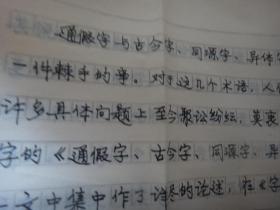 通假字与古今字、同源字、异体
一件棘手的事。对于这几个术语，人
许多具体问题上至今聚讼纷纭，莫衷
字的《通假字、古今字、同源字、异
一文中集中作了详尽的论述，在《字